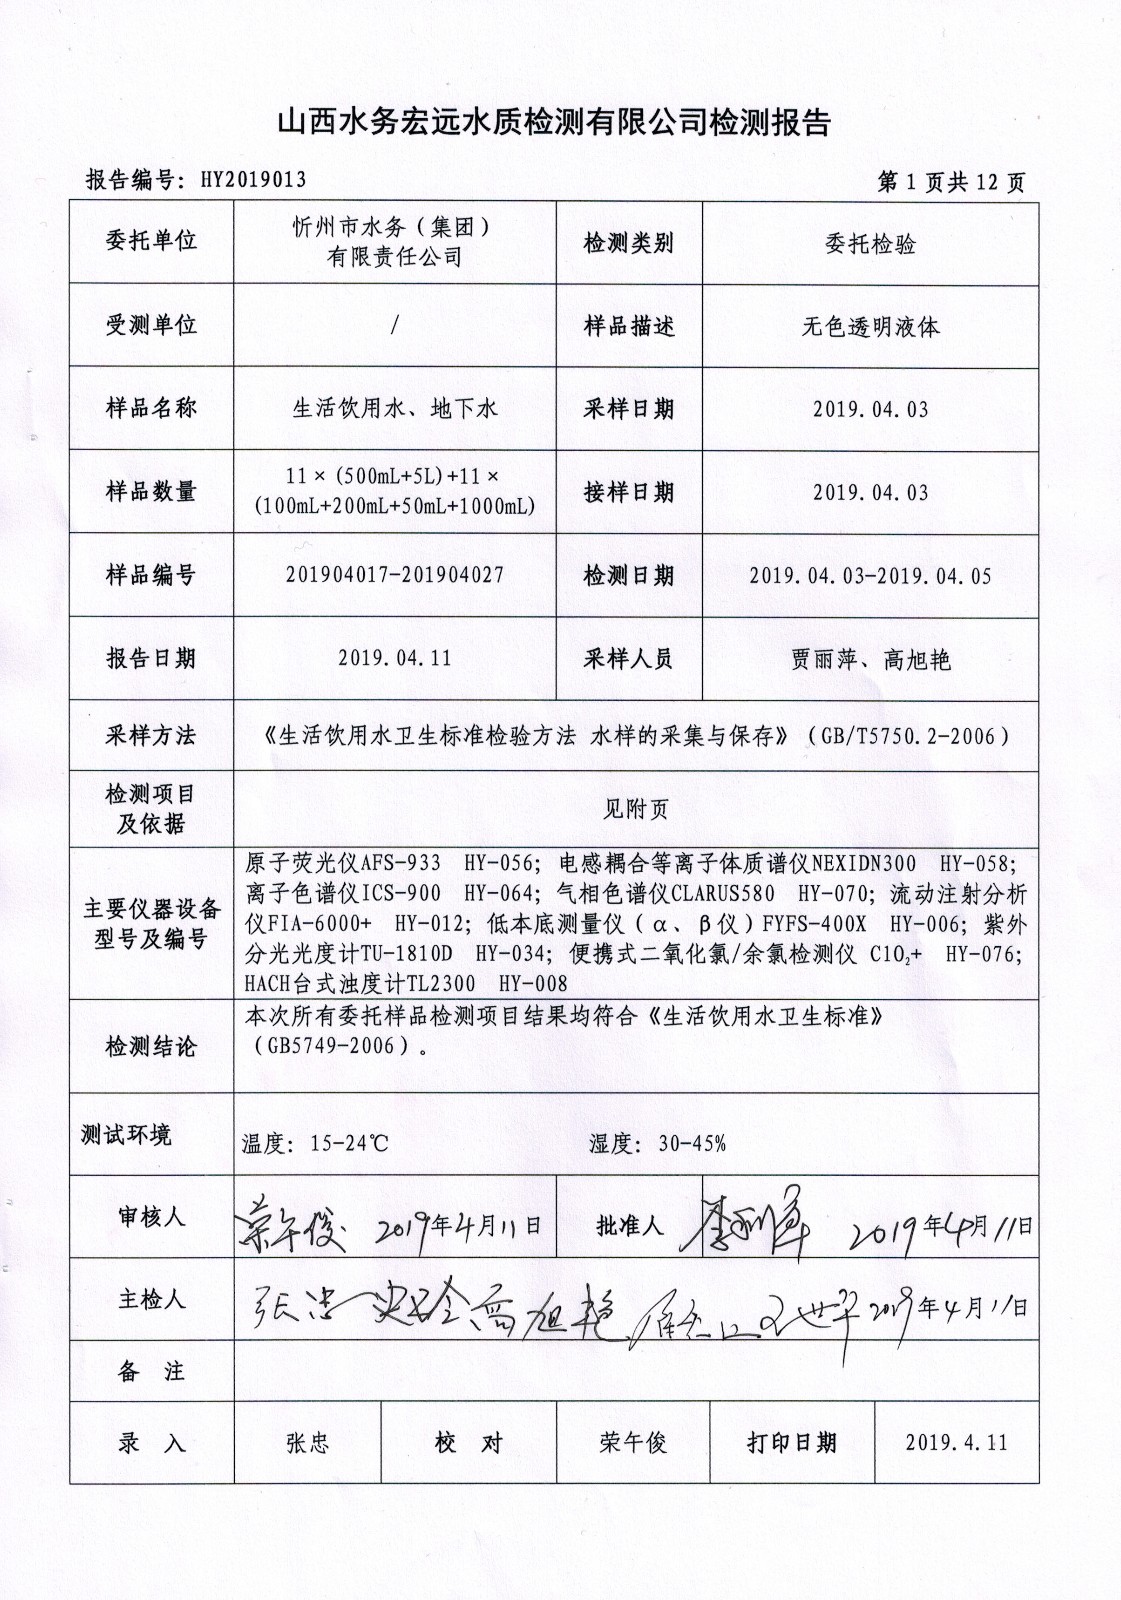 山西水务宏远水质检测有限公司检测报告
报告编号：HY2019013 第 1 页共 12 页
委托单位 忻州市水务（集团）
有限责任公司 检测类别 委托检验
受测单位 / 样品描述 无色透明液体
样品名称 生活饮用水、地下水 采样日期 2019.04.03
样品数量 11×(500mL+5L)+11×
(100mL+200mL+50mL+1000mL) 接样日期 2019.04.03
样品编号 201904017-201904027 检测日期 2019.04.03-2019.04.05
报告日期 2019.04.11 采样人员 贾丽萍、高旭艳
采样方法 《生活饮用水卫生标准检验方法 水样的采集与保存》（GB/T5750.2-2006）
检测项目
及依据 见附页
主要仪器设备
型号及编号
原子荧光仪AFS-933 HY-056；电感耦合等离子体质谱仪NEXIDN300 HY-058；
离子色谱仪ICS-900 HY-064；气相色谱仪CLARUS580 HY-070；流动注射分析
仪FIA-6000+ HY-012；低本底测量仪（α、β仪）FYFS-400X HY-006；紫外
分光光度计TU-1810D HY-034；便携式二氧化氯/余氯检测仪 ClO₂+ HY-076；
HACH台式浊度计TL2300 HY-008
检测结论 本次所有委托样品检测项目结果均符合《生活饮用水卫生标准》
（GB5749-2006）。
测试环境 温度：15-24℃ 湿度：30-45%
审核人 荣午俊 2019年4月11日 批准人 2019年4月11日
主检人 张忠 高旭艳 2019年4月11日
备 注
录 入 张忠 校 对 荣午俊 打印日期 2019.4.11